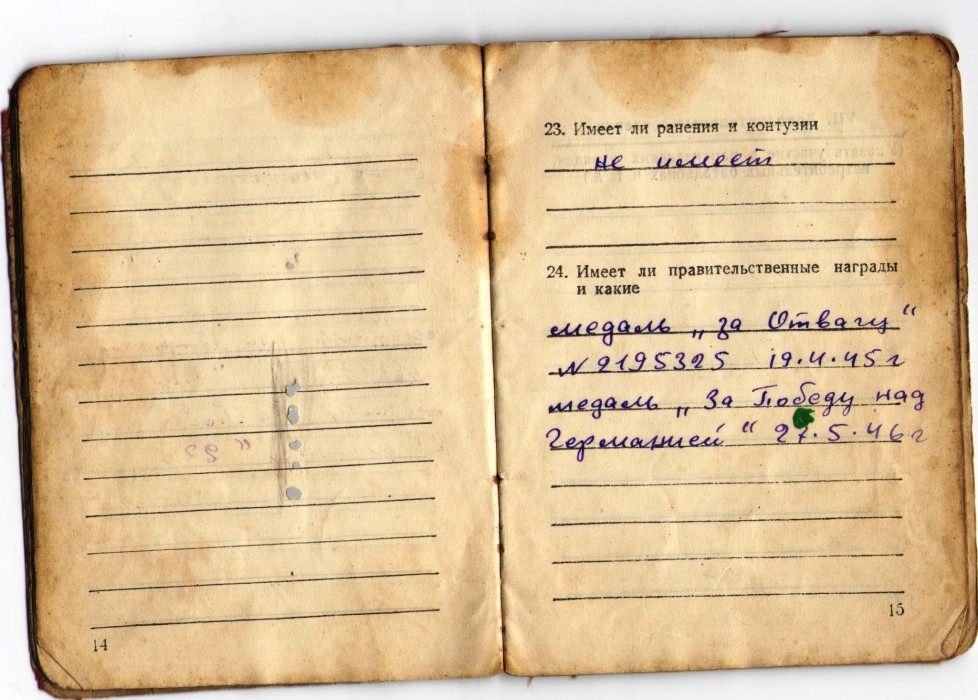 14
23. Имеет ли ранения и контузии
не имеет
24. Имеет ли правительственные награды
и какие
медаль „за Отвагу“
№ 2195325 19.4.45 г
медаль „За Победу над
Германией“ 27.5.46 г
15